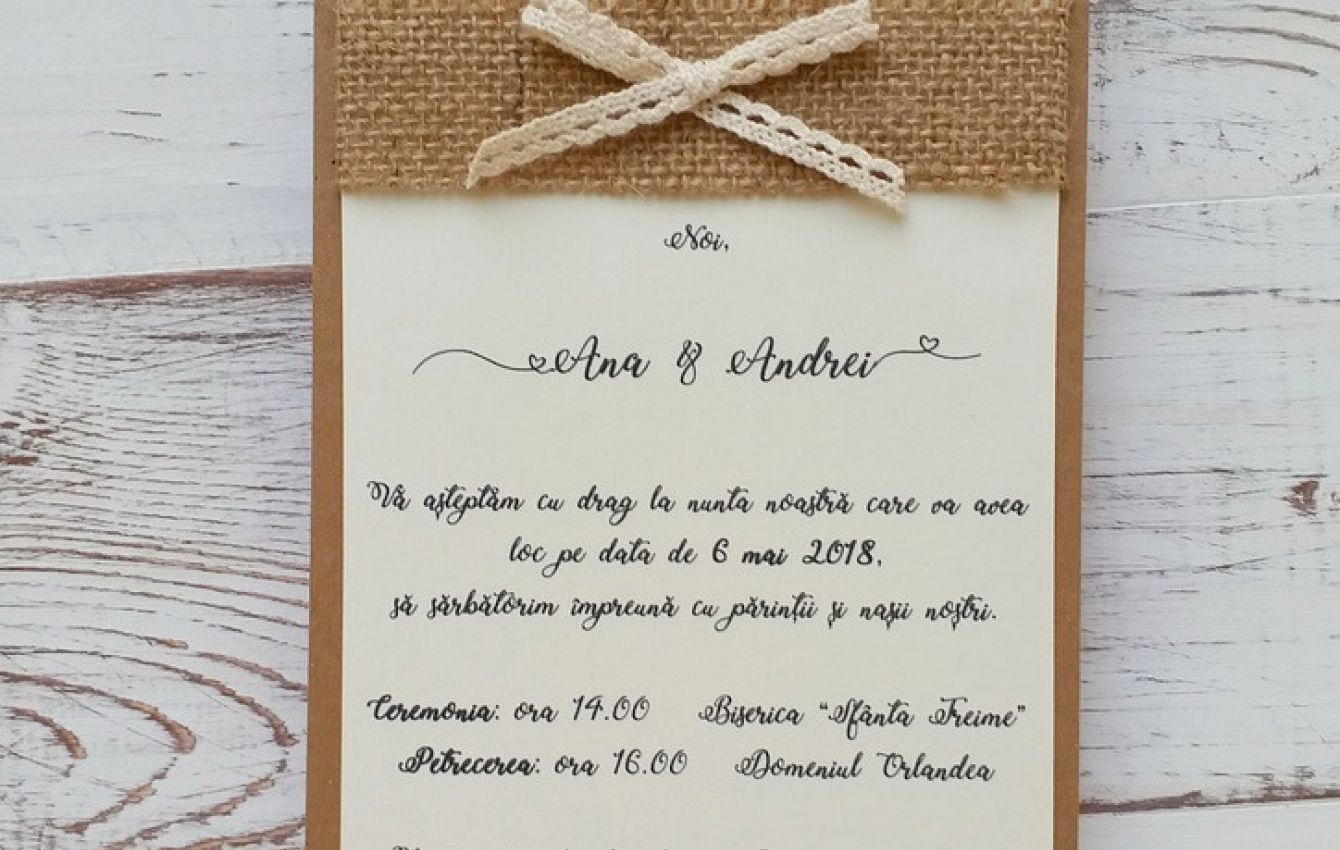 Noi,
Ana & Andrei
Vă așteptăm cu drag la nunta noastră care va avea
loc pe data de 6 mai 2018,
să sărbătorim împreună cu părinții și nașii noștri.
Ceremonia: ora 14.00 Biserica “Sfânta Treime”
Petrecerea: ora 16.00 Domeniul Orlandea